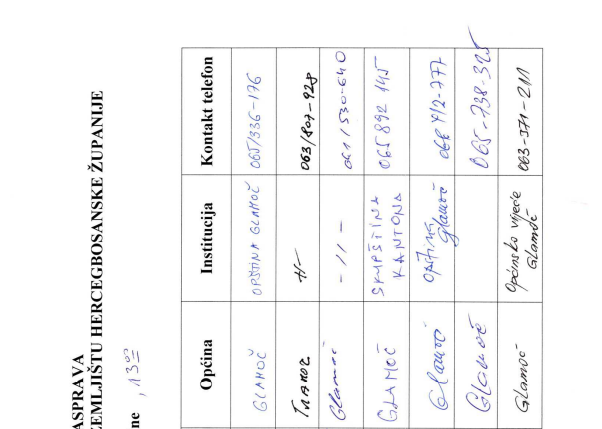 ASPRAVA
ZEMLJIŠTU HERCEGBOSANSKE ŽUPANIJE
ne , 13 00
Općina Institucija Kontakt telefon
GLAMOČ OPŠTINA GLAMOČ 065/336-176
Гламоч -//- 063/807-928
Glamoč -//- 061/530-640
GLAMOČ SKUPŠTINA KANTONA 065 892 145
Glamoč Opština Glamoč
Glamoč 065-738-325
Glamoč Općinsko vijeće Glamoč 063-371-211